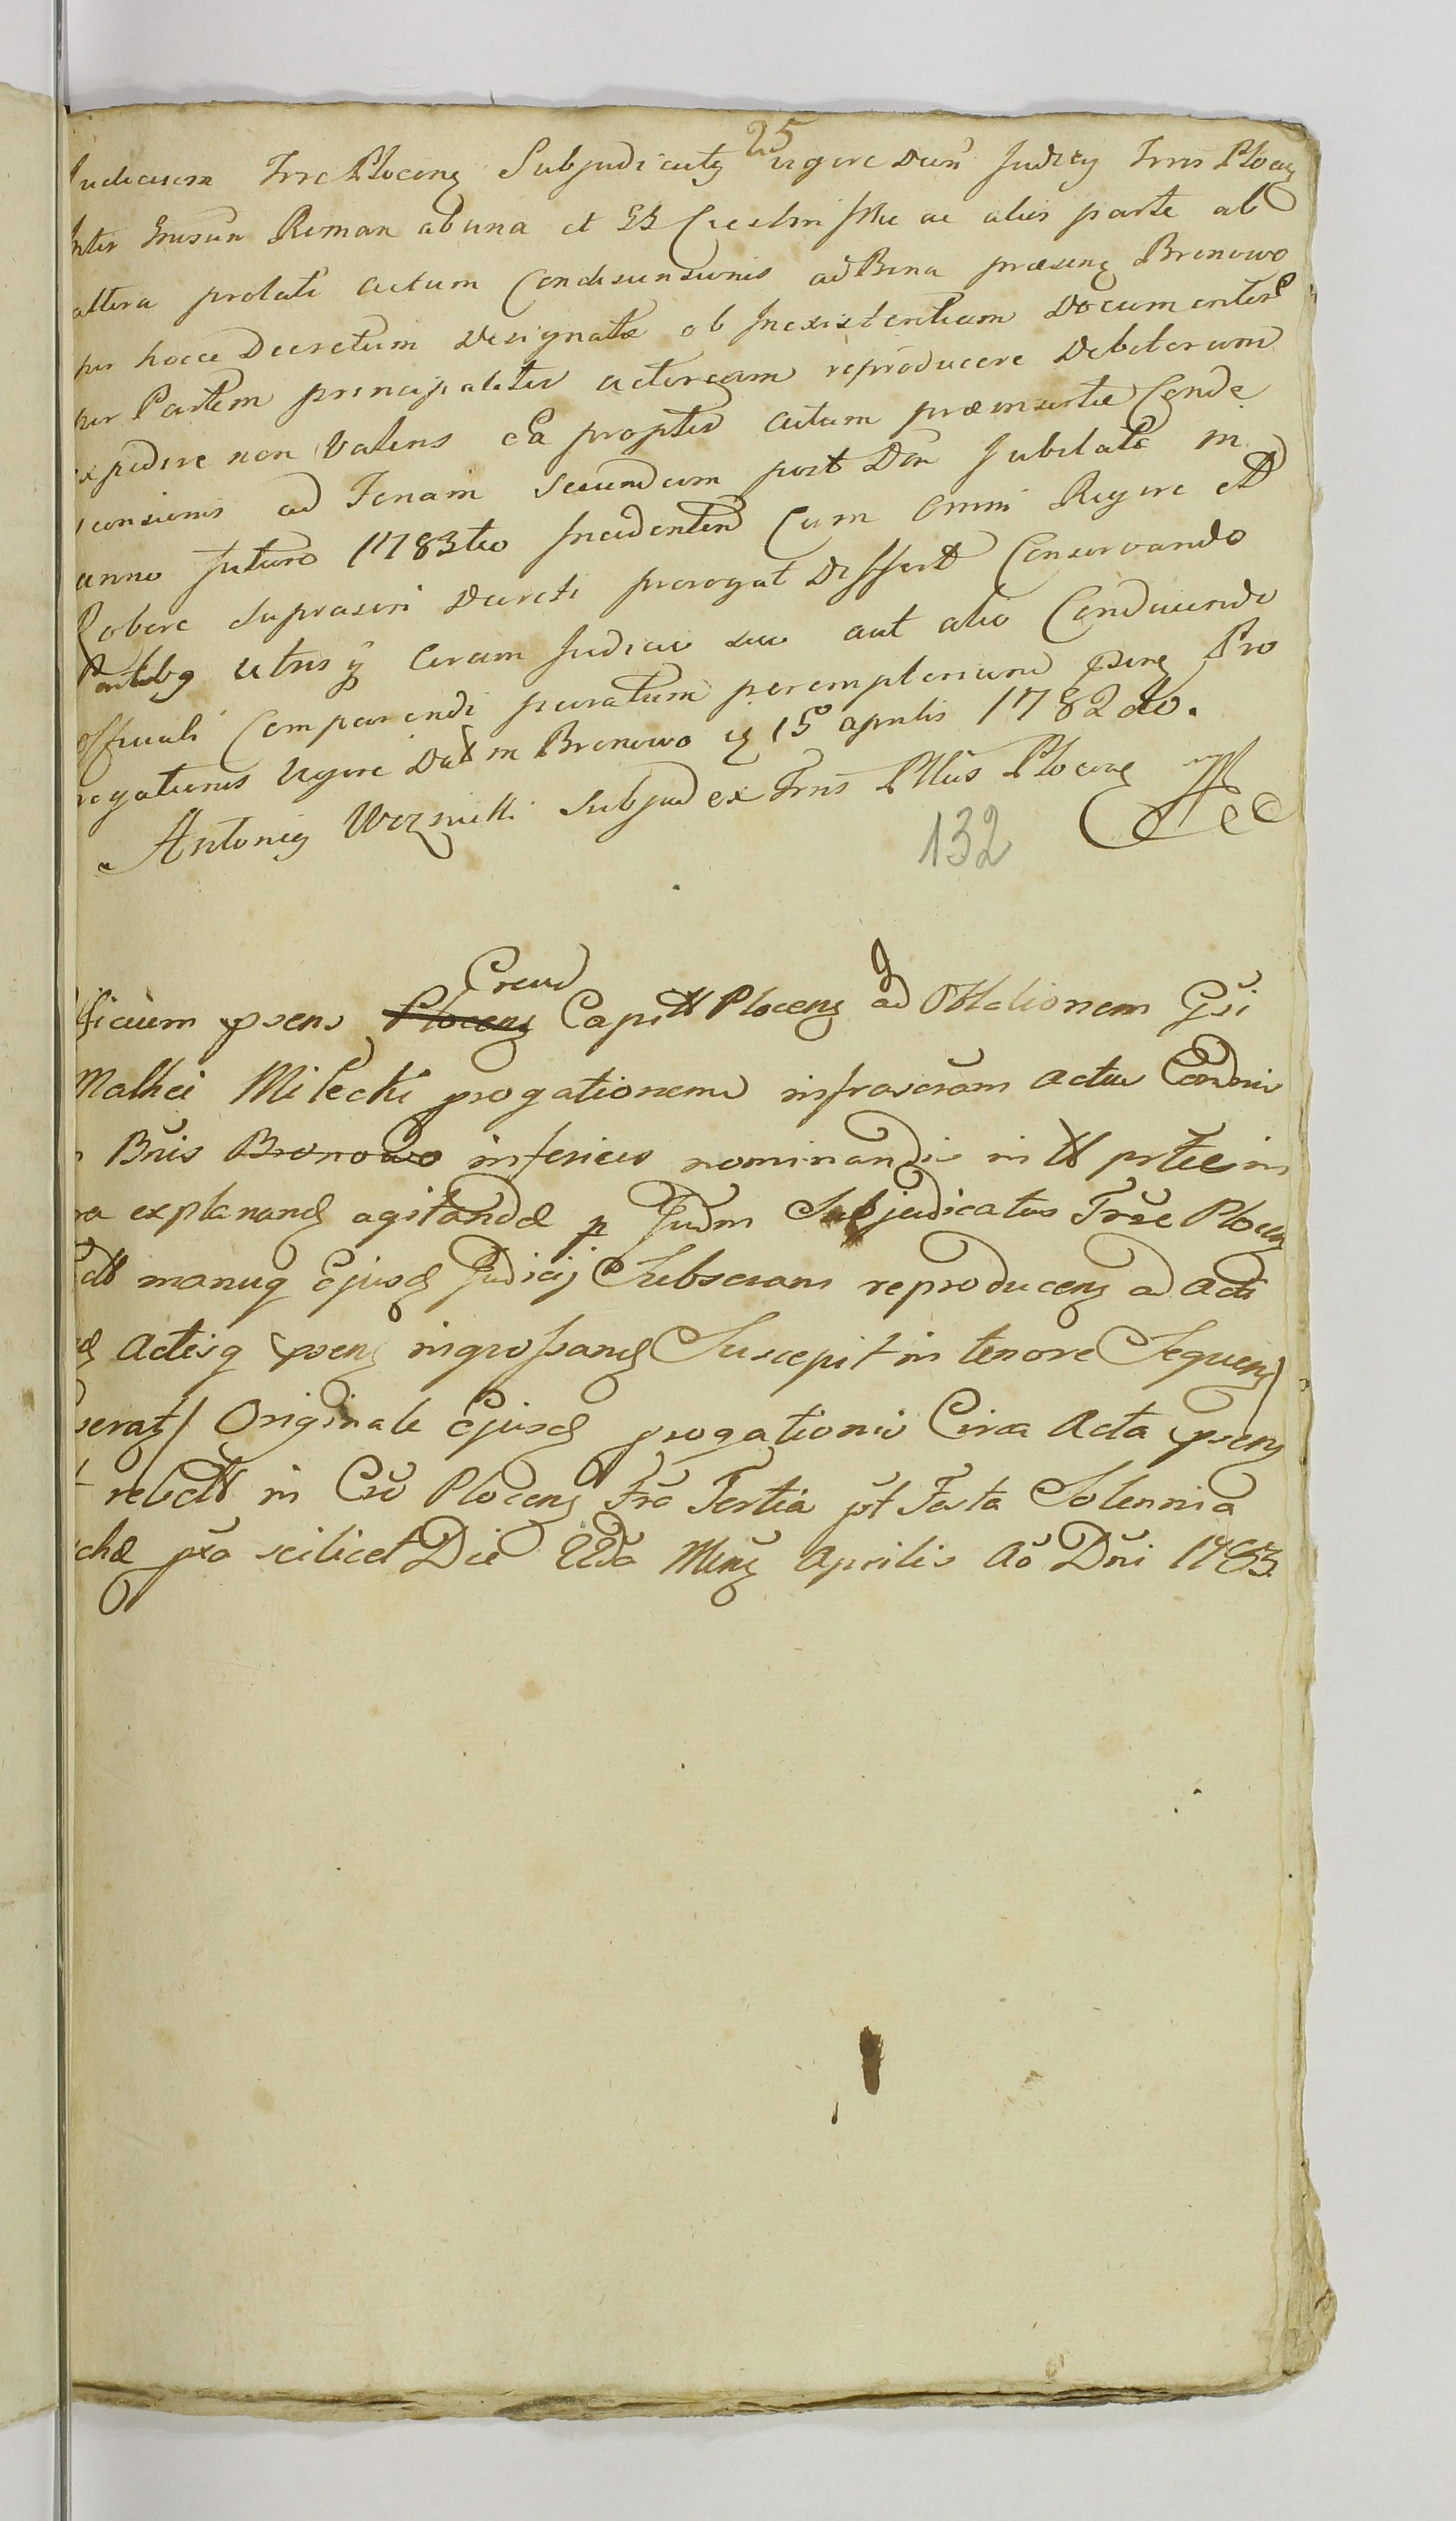 25
Judicium Trrae Plocens Subjudicatus vigore Decri Judicy Trris Plocen
Inter Roman ab una et GB ac alias parte ab
altera prolati actum Condescensionis ad Bona praesens Bronowo
per hocce Decretum designatae ob Inexistentiam Documentor
per Partem principaliter actoream reproducere Debitorum
expedire non Valens Ea propter actum praeinsertae Conde
scensionis ad Fenam Secundum post Don Jubilate in
anno futuro 1783tio Incidenten Cum omni Rigore et
Robore suprascri Decreti prorogat Differt Conservando
Partibq utrisq Coram Judicio suo aut alio Conducendo
officiali Comparendi peremptorium psens Pro
rogationis Vigore Dat in Bronowo 15 aprilis 1782do.
Antonius Subjudex Trris Plttus Plocens
132
Crend
fficium psens Plocens Capitt Plocens ad Oblationem Gsi
Mathei Milecki progationem infrascram actus Condnis
Bnis Bronowo inferius nominandis in tt prtte in
ra explanand agitandae p Judm Subjudicatus Trrae Plocen
ctt manuq Ejusd Judicij Subscram reproducens ad acta
d actisq psens ingrossand Suscepit in tenore Sequens
serat/ Originale Ejusd progationis Circa Acta psens
t relictt in Cro Plocens Fra Tertia pt Festa Solennia
chae pxa scilicet Die 22da Mens Aprilis Ao Dni 1783.